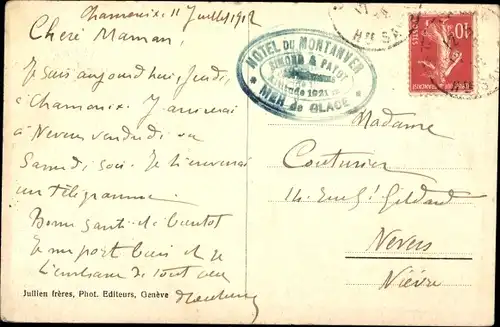 Chamonix, 11 Juillet 1912
Chère Maman,
Je suis aujourd'hui, Jeudi,
à Chamonix. J'arriverai
à Nevers vendredi ou
Samedi soir. Je t'enverrai
un télégramme.
Bonne santé et à bientôt
Je me porte bien et je
t'embrasse de tout cœur
Jullien frères, Phot. Editeurs, Genève
HOTEL DU MONTANVER
SIMOND & PAYOT
Altitude 1921 m
MER de GLACE
Hte SA
10
POSTES
Madame
Couturier
Nevers
Nièvre